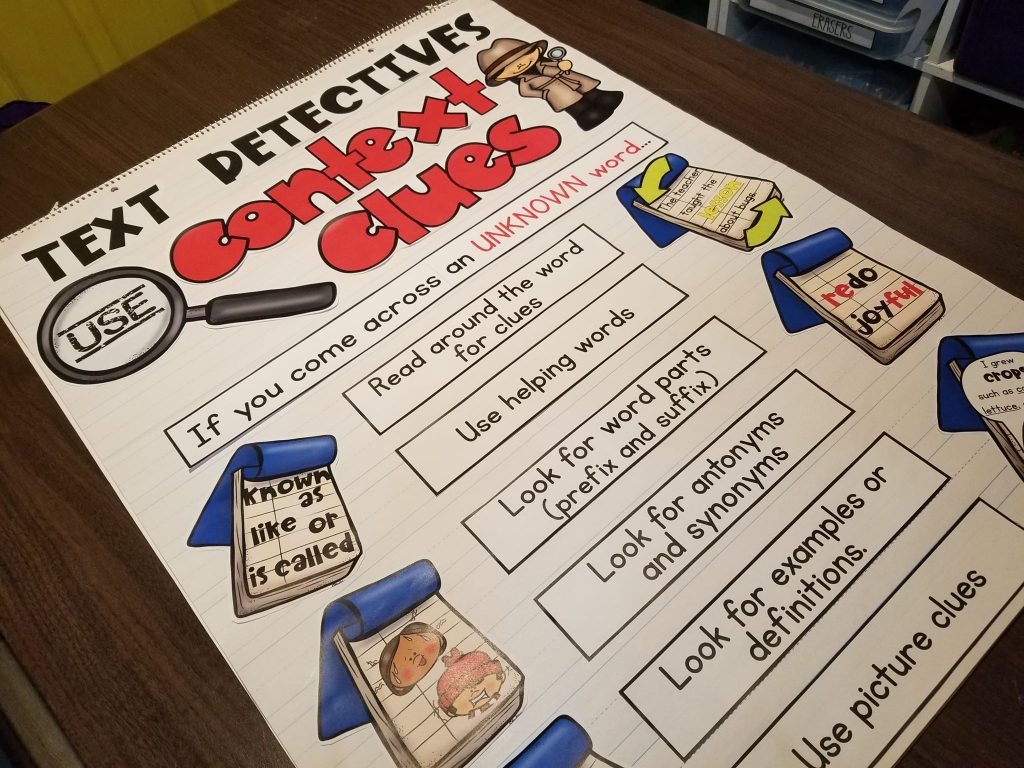 ERASERS
TEXT DETECTIVES
USE
context
clues
If you come across an UNKNOWN word...
Read around the word
for clues
The teacher
taught the
about bugs.
Use helping words
known
as
like or
is called
Look for word parts
(prefix and suffix)
redo
joyful
Look for antonyms
and synonyms
Look for examples or
definitions.
I grew
crops
such as
lettuce,
Use picture clues